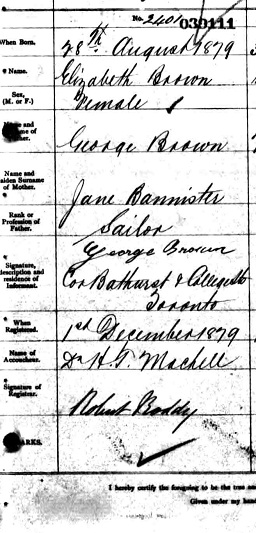 No. 2401 030111
When Born. 28th August 1879
Name. Elizabeth Brown
Sex, (M. or F.) Female
Name and
Surname of
Father. George Brown
Name and
Maiden Surname
of Mother. Jane Bannister
Rank or
Profession of
Father. Sailor
Signature,
description and
residence of
Informant. George Brown
Cor Bathurst & College Sts
Toronto
When
Registered. 1st December 1879
Name of
Accoucheur. Dr H. T. Machell
Signature of
Registrar. Robert Roddy
REMARKS.
I hereby certify the foregoing to be the true and
Given under my hand